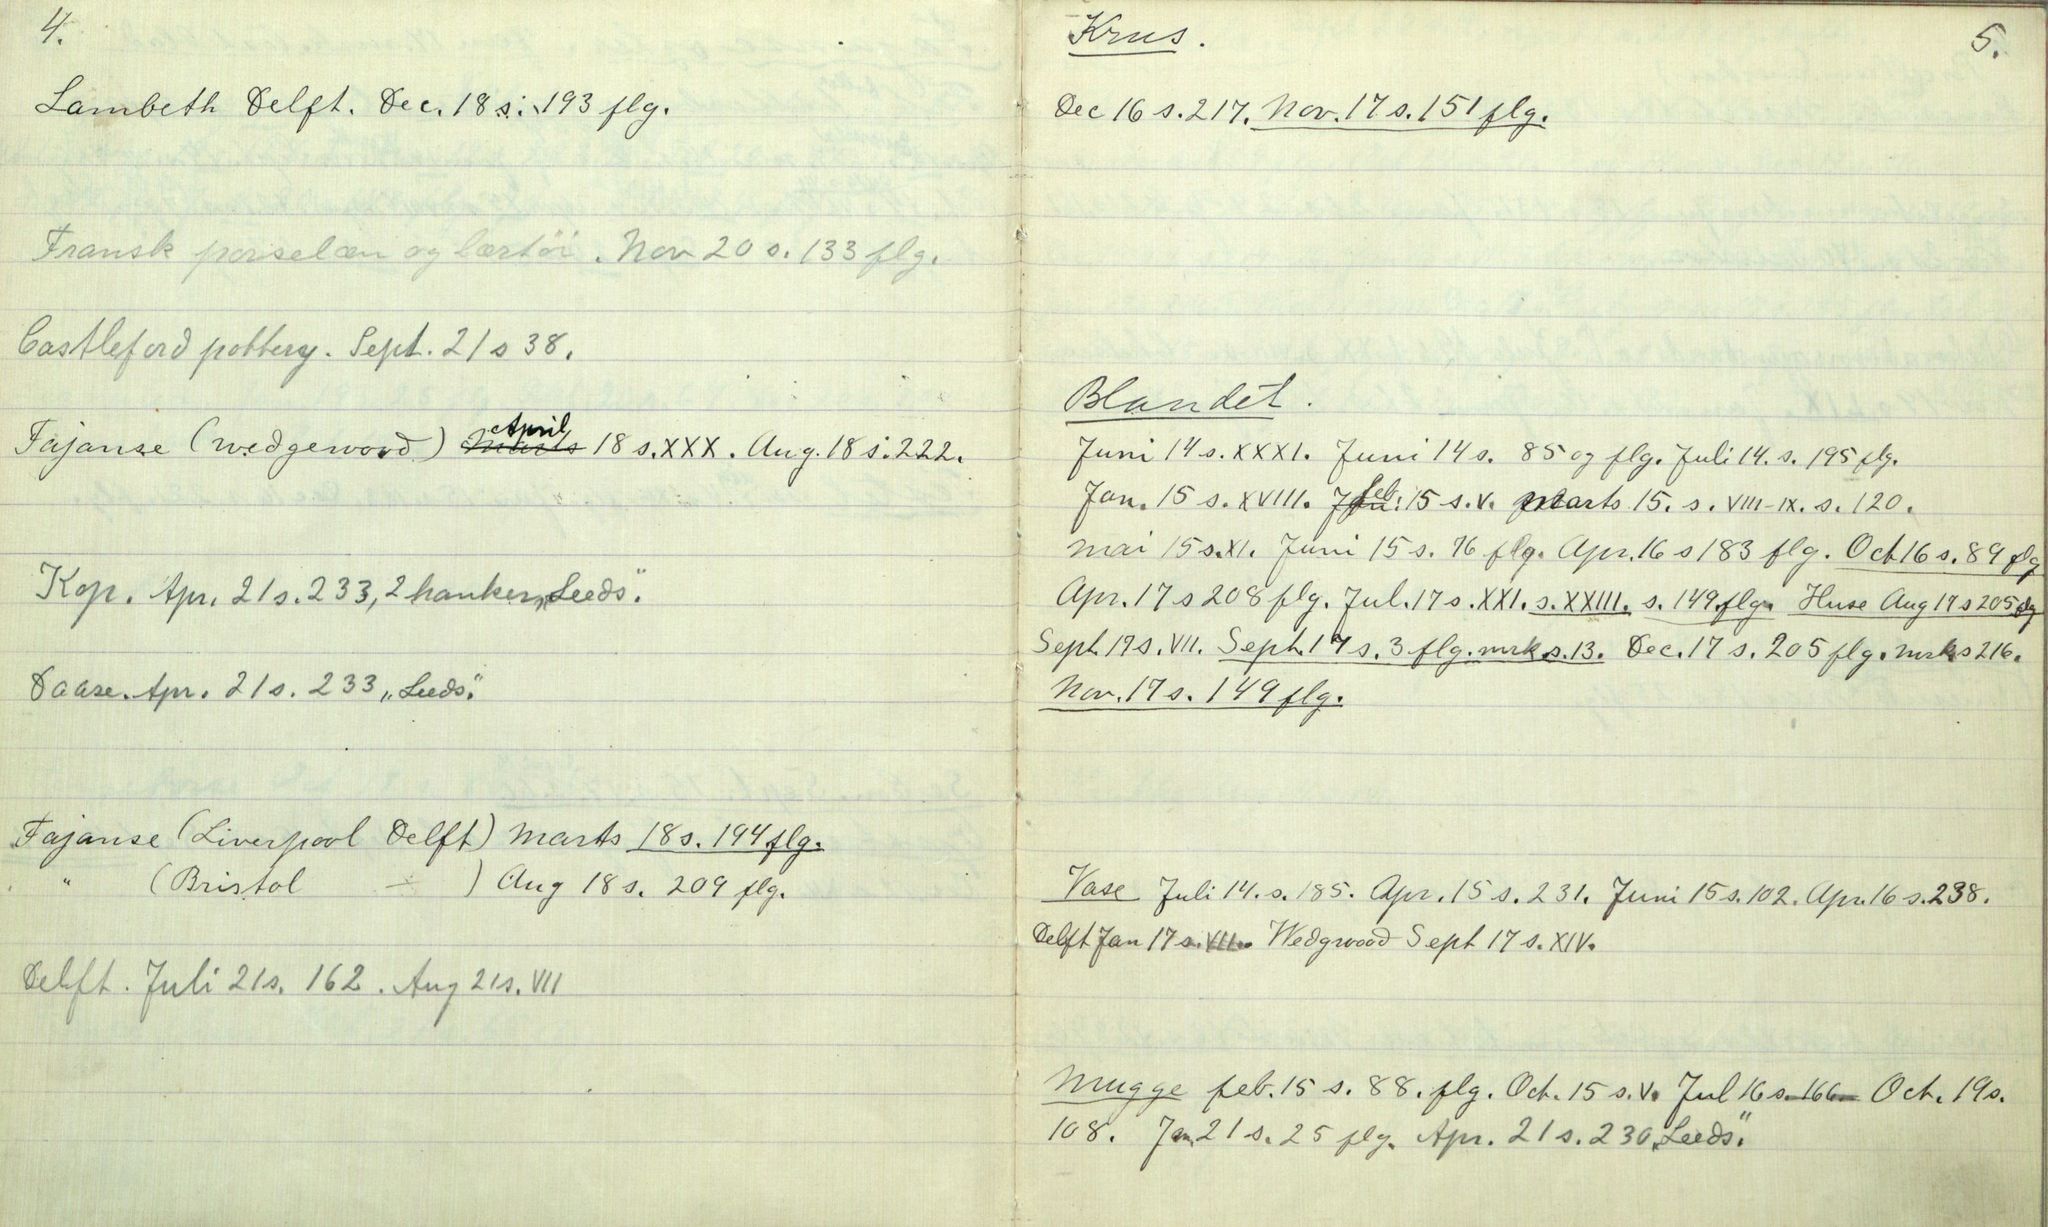 4.
Lambeth Delft. Dec. 18 s. 193 flg.
Fransk porselæn og lærtöi. Nov 20 s. 133 flg.
Castleford pottery. Sept. 21 s 38.
April
Fajanse (Wedgewood) Marts 18 s. XXX. Aug. 18 s. 222.
Kop. Apr. 21 s. 233, 2 hanker „Leeds".
Daase. Apr. 21 s. 233 „Leeds".
Fajanse (Liverpool Delft) Marts 18 s. 194 flg.
" (Bristol -"- ) Aug 18 s. 209 flg.
Delft. Juli 21 s. 162. Aug 21 s. VII
5.
Krus.
Dec 16 s. 217. Nov. 17 s. 151 flg.
Blandet.
Juni 14 s. XXXI. Juni 14 s. 85 og flg. Juli 14. s. 195 flg.
Jan. 15 s. XVIII. feb. 15 s. V. Marts 15. s. VIII-IX. s. 120.
Mai 15 s. XI. Juni 15 s. 76 flg. Apr. 16 s 183 flg. Oct 16 s. 89 flg
Apr. 17 s 208 flg. Jul. 17 s. XXI. s. XXIII. s. 149 flg. Huse Aug 17 s 205 flg
Sept 17 s. VII. Sept. 17 s. 3 flg. mrk s. 13. Dec. 17 s. 205 flg. mrk s 216.
Nov. 17 s. 149 flg.
Vase Juli 14. s. 185. Apr. 15 s. 231. Juni 15 s. 102. Apr. 16 s. 238.
Delft Jan 17 s. VII. Wedgwood Sept 17 s. XIV.
Mugge feb. 15 s. 88. flg. Oct. 15 s. V. Jul 16 s. 166 Oct. 19 s.
108. Jan. 21 s. 25 flg. Apr. 21 s. 230 „Leeds".